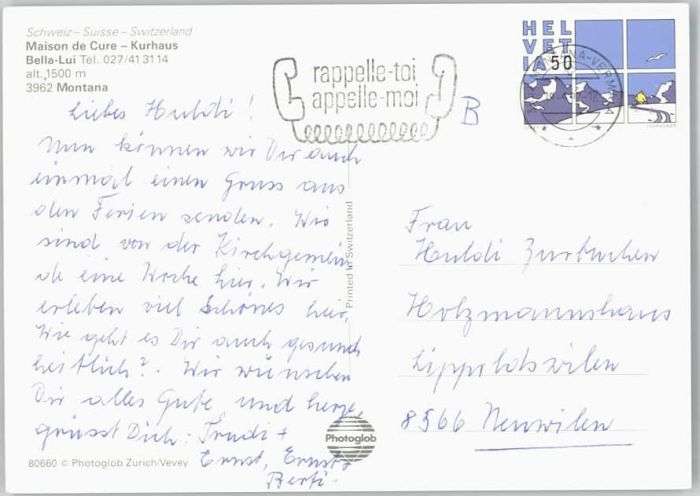 Schweiz – Suisse – Switzerland
Maison de Cure – Kurhaus
Bella-Lui Tel. 027/41 31 14
alt. 1500 m
3962 Montana
rappelle-toi
appelle-moi
HEL
VET
IA 50
B
Liebes Huldi!
Nun können wir Dir auch
einmal einen Gruss aus
den Ferien senden. Wir
sind von der Kirchgemein
de eine Woche hier. Wir
erleben viel Schönes hier,
Wie geht es Dir auch gesund
heitlich? Wir wünschen
Dir alles Gute und herzl.
grüsst Dich: Trudi +
Ernst, Ernst +
Berti.
Printed in Switzerland
Frau
Huldi Zurbuchen
Holzmannshaus
Lippoldswilen
8566 Neuwilen
Photoglob
80660 © Photoglob Zürich/Vevey